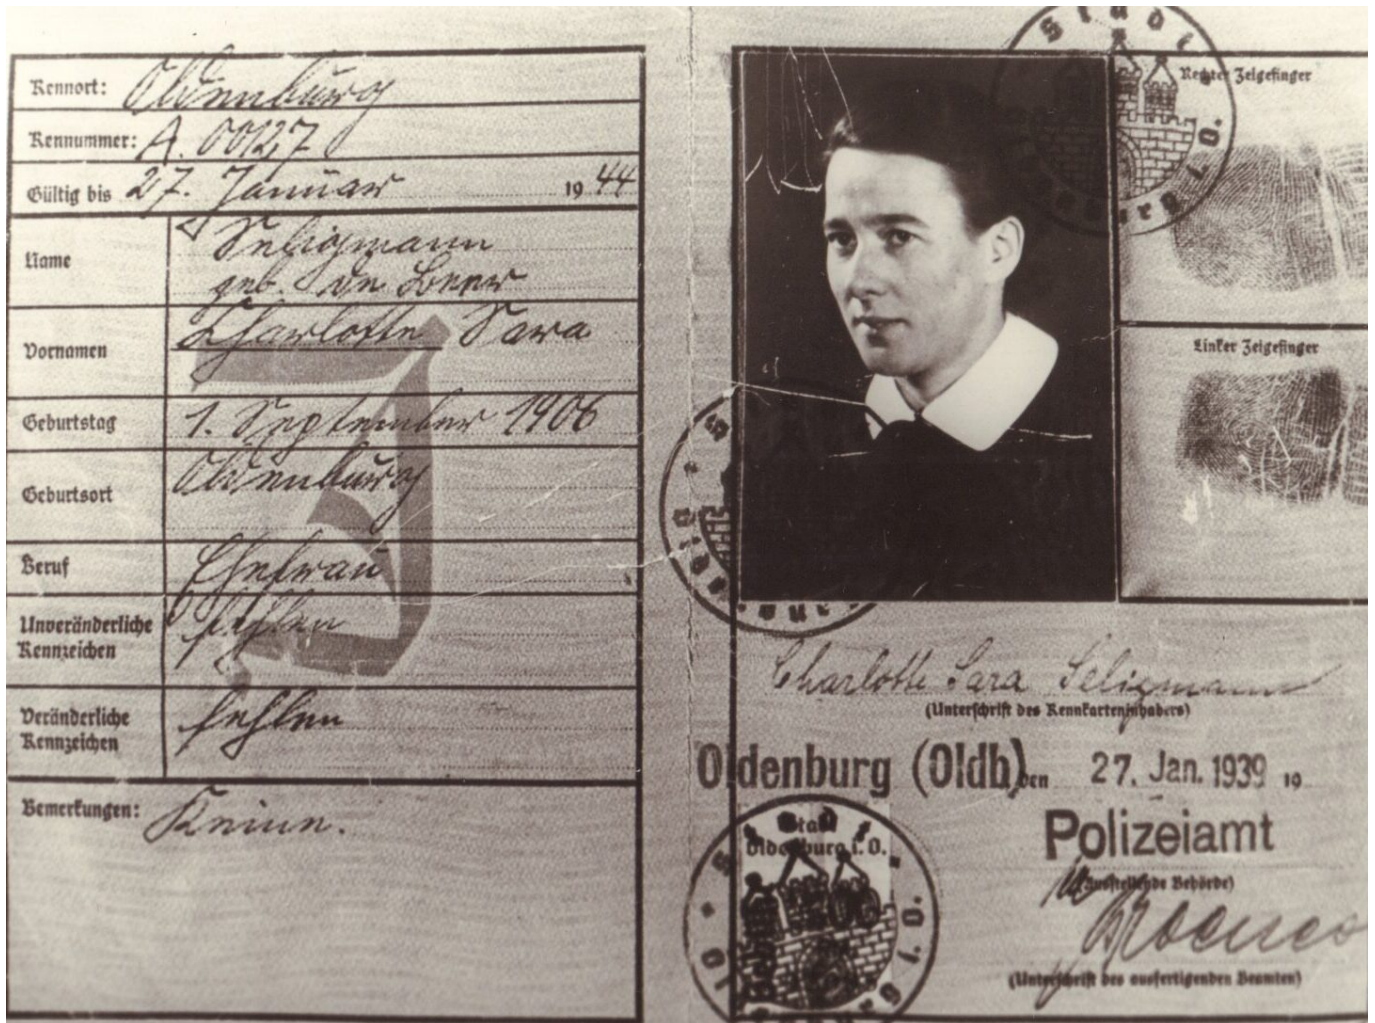 Kennort: Oldenburg
Kennummer: A. 00127
Gültig bis 27. Januar 1944
Name
Seligmann
geb. de Beer
Vornamen
Charlotte Sara
Geburtstag
1. September 1906
Geburtsort
Oldenburg
Beruf
Ehefrau
Unveränderliche
Kennzeichen
fehlen
Veränderliche
Kennzeichen
fehlen
Bemerkungen: Keine.
J
Rechter Zeigefinger
Linker Zeigefinger
Charlotte Sara Seligmann
(Unterschrift des Kennkarteninhabers)
Oldenburg (Oldb), den 27. Jan. 1939 19
Stadt
Oldenburg i. O.
Polizeiamt
(Ausstellende Behörde)
(Unterschrift des ausfertigenden Beamten)